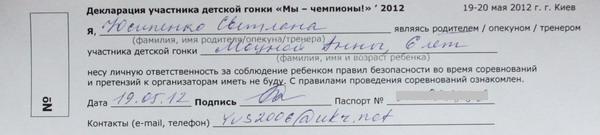 Декларация участника детской гонки «Мы – чемпионы!» ’ 2012 19-20 мая 2012 г. г. Киев
Я, Юсипенко Светлана являясь родителем / опекуном / тренером
(фамилия, имя родителя/опекуна/тренера)
участника детской гонки Анны, 6 лет
(фамилия, имя и возраст ребенка)
несу личную ответственность за соблюдение ребенком правил безопасности во время соревнований
и претензий к организаторам иметь не буду. С правилами проведения соревнований ознакомлен.
Дата 19.05.12 Подпись Паспорт №
Контакты (e-mail, телефон) yus2006@ukr.net
№